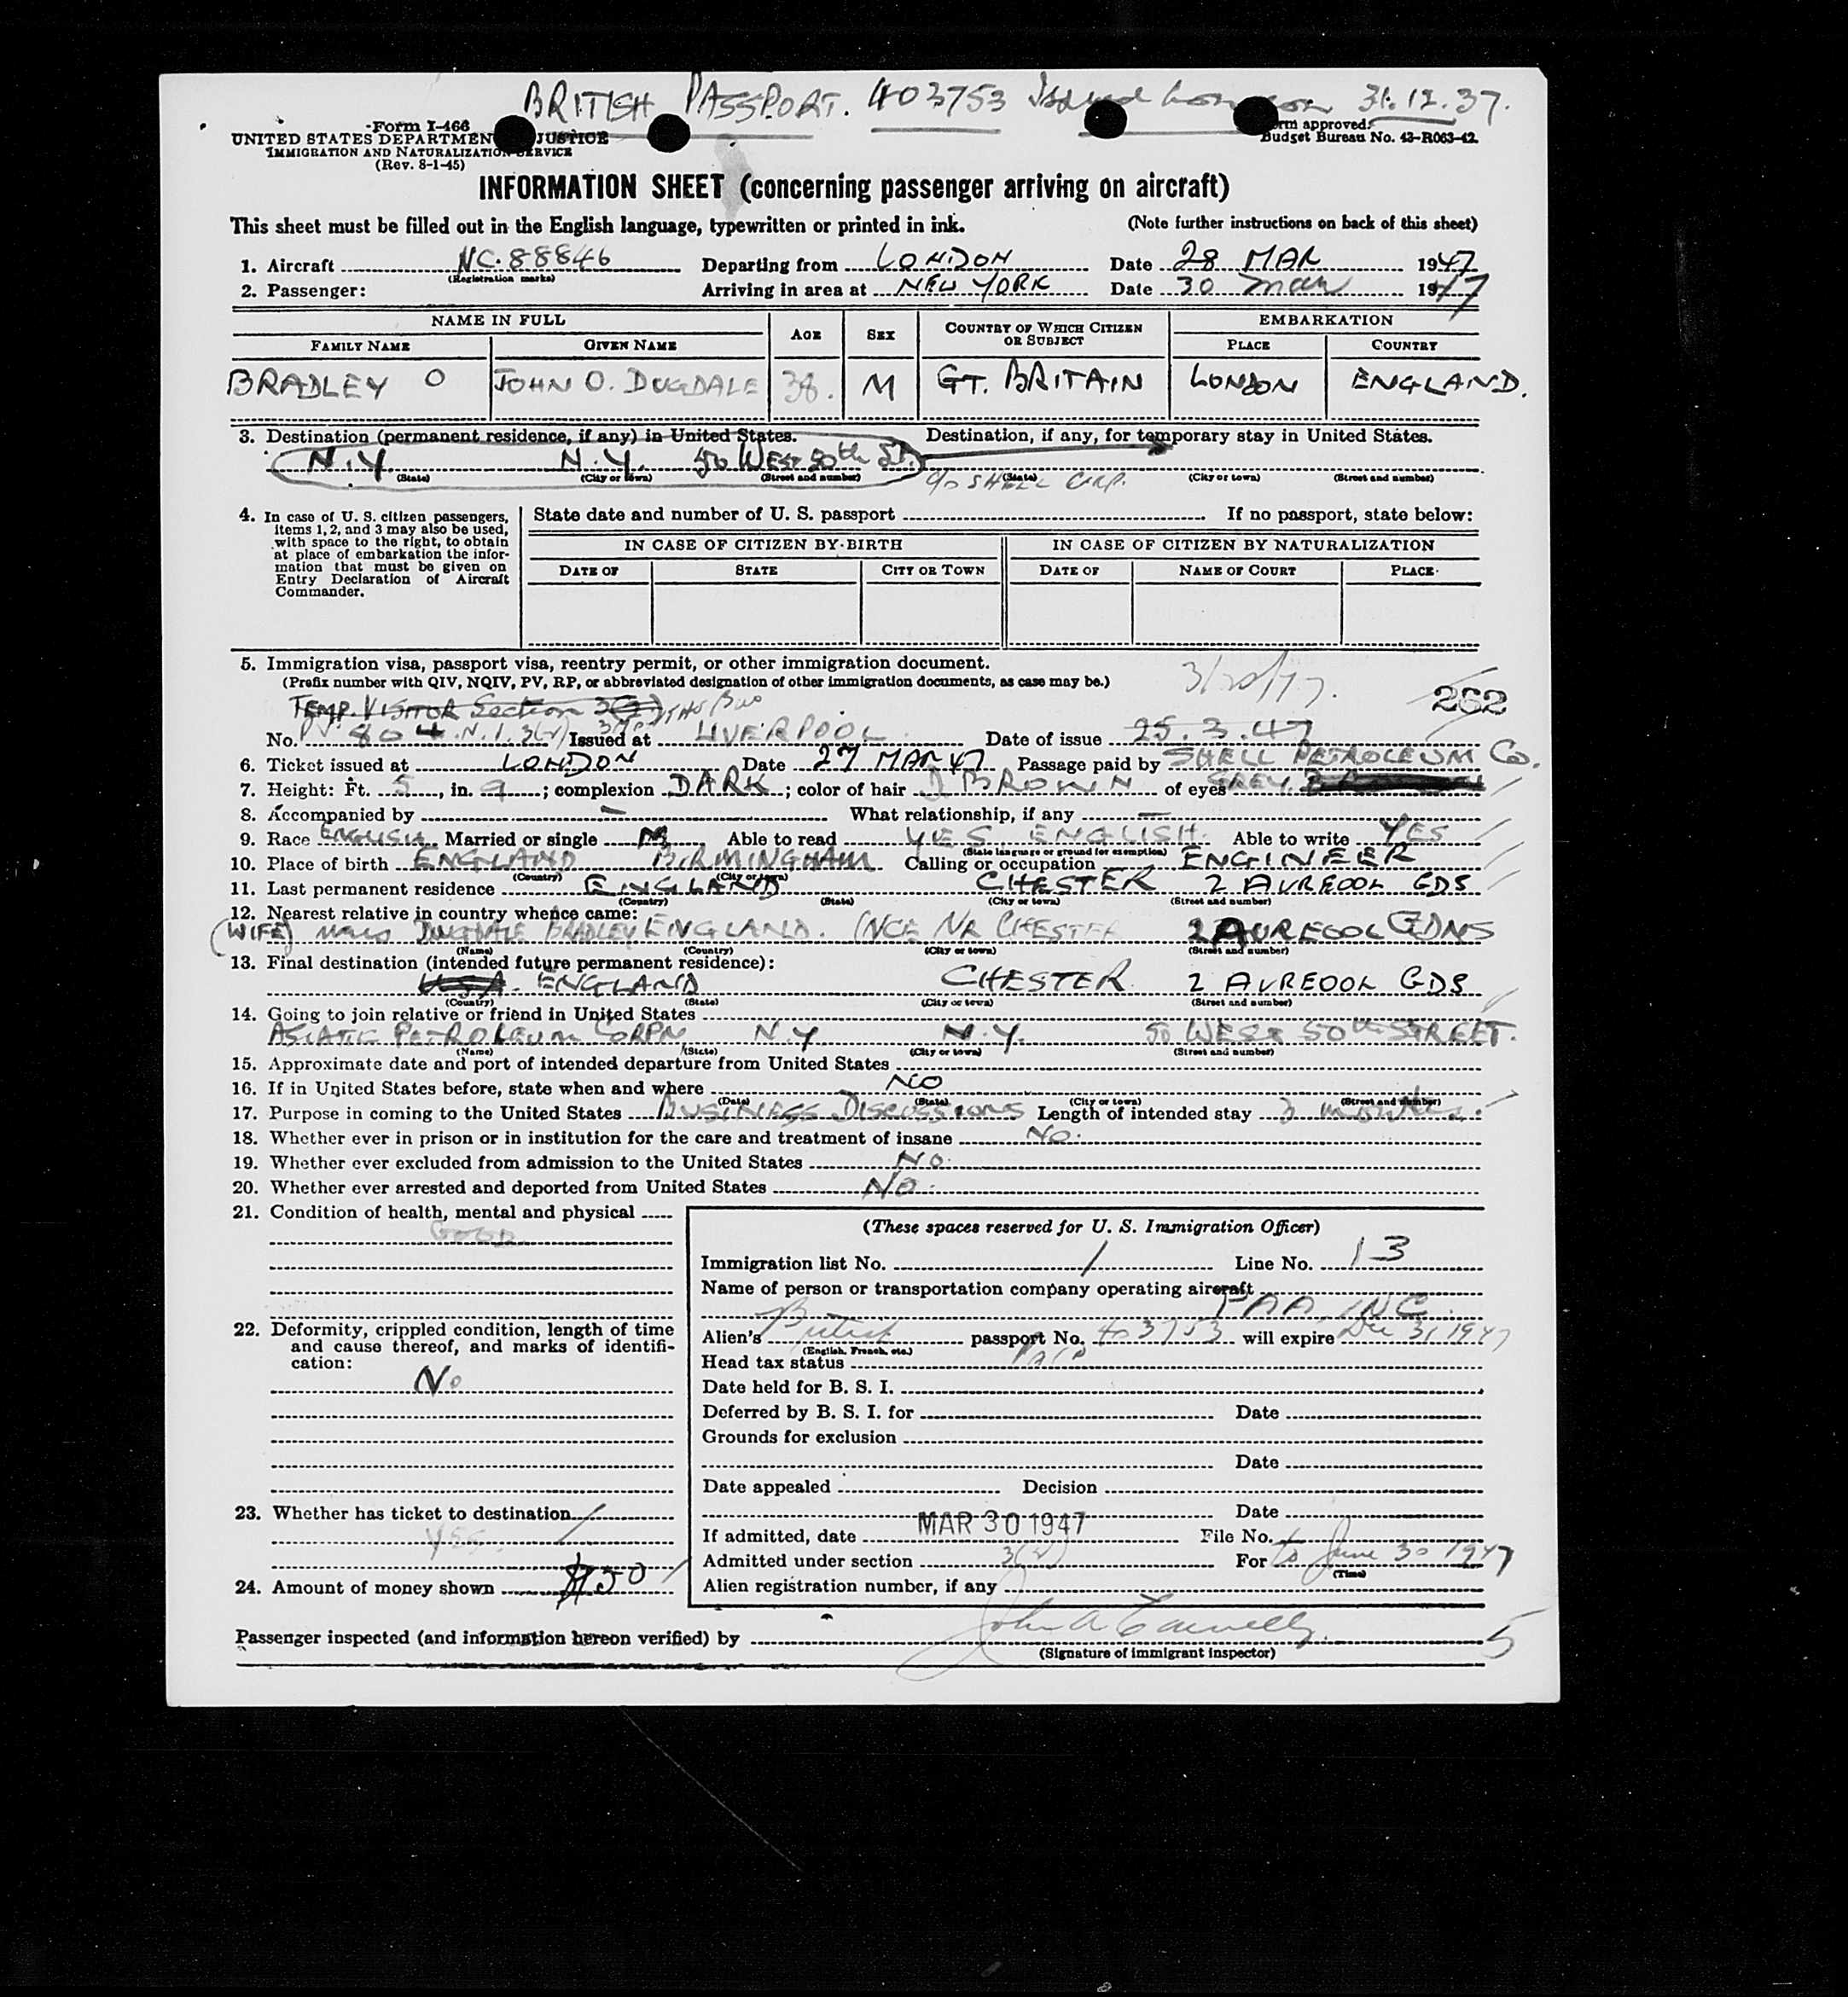 BRITISH PASSPORT. 403753 Issued London 31.12.37.
Form I-466
UNITED STATES DEPARTMENT JUSTICE
IMMIGRATION AND NATURALIZATION SERVICE
(Rev. 8-1-45)
Form approved.
Budget Bureau No. 43-R063-42.
INFORMATION SHEET (concerning passenger arriving on aircraft)
This sheet must be filled out in the English language, typewritten or printed in ink. (Note further instructions on back of this sheet)
1. Aircraft NC.88846 Departing from LONDON Date 28 MAR 1947
(Registration marks)
2. Passenger: Arriving in area at NEW YORK Date 30 Mar 1947
NAME IN FULL AGE SEX COUNTRY OF WHICH CITIZEN OR SUBJECT EMBARKATION
FAMILY NAME GIVEN NAME PLACE COUNTRY
BRADLEY O JOHN O. DUGDALE 38. M GT. BRITAIN LONDON ENGLAND.
3. Destination (permanent residence, if any) in United States. Destination, if any, for temporary stay in United States.
N.Y N.Y. 50 WEST 50th ST.
(State) (City or town) (Street and number) (State) (City or town) (Street and number)
c/o SHELL CORP.
4. In case of U. S. citizen passengers, items 1, 2, and 3 may also be used, with space to the right, to obtain at place of embarkation the information that must be given on Entry Declaration of Aircraft Commander.
State date and number of U. S. passport If no passport, state below:
IN CASE OF CITIZEN BY BIRTH IN CASE OF CITIZEN BY NATURALIZATION
DATE OF STATE CITY OR TOWN DATE OF NAME OF COURT PLACE
5. Immigration visa, passport visa, reentry permit, or other immigration document.
(Prefix number with QIV, NQIV, PV, RP, or abbreviated designation of other immigration documents, as case may be.)
3/30/47.
262
TEMP. VISITOR Section 3(2)
No. PV 804 N.I. 3(2) Issued at LIVERPOOL Date of issue 25.3.47
6. Ticket issued at LONDON Date 27 MAR 47 Passage paid by SHELL PETROLEUM Co.
7. Height: Ft. 5, in. 9; complexion DARK; color of hair D BROWN of eyes GREY
8. Accompanied by — What relationship, if any —
9. Race ENGLISH Married or single M Able to read YES ENGLISH. Able to write YES
(State language or ground for exemption)
10. Place of birth ENGLAND BIRMINGHAM Calling or occupation ENGINEER
(Country) (City or town)
11. Last permanent residence ENGLAND CHESTER 2 AUREOOL GDS
(Country) (State) (City or town) (Street and number)
12. Nearest relative in country whence came:
(WIFE) MRS DUGDALE BRADLEY ENGLAND. INCE NR CHESTER 2 AUREOOL GDNS
(Name) (Country) (City or town) (Street and number)
13. Final destination (intended future permanent residence):
USA. ENGLAND CHESTER 2 AUREOOL GDS
(Country) (State) (City or town) (Street and number)
14. Going to join relative or friend in United States
ASIATIC PETROLEUM CORPN N.Y N.Y. 50 WEST 50th STREET.
(Name) (State) (City or town) (Street and number)
15. Approximate date and port of intended departure from United States
16. If in United States before, state when and where NO
(Date) (State) (City or town) (Street and number)
17. Purpose in coming to the United States BUSINESS DISCUSSIONS Length of intended stay 3 months.
18. Whether ever in prison or in institution for the care and treatment of insane No.
19. Whether ever excluded from admission to the United States No.
20. Whether ever arrested and deported from United States No.
21. Condition of health, mental and physical
GOOD
22. Deformity, crippled condition, length of time and cause thereof, and marks of identification:
No
23. Whether has ticket to destination
YES.
24. Amount of money shown $150
(These spaces reserved for U. S. Immigration Officer)
Immigration list No. 1 Line No. 13
Name of person or transportation company operating aircraft
PAA INC.
Alien's British passport No. 403753 will expire Dec 31 1947
(English, French, etc.)
Head tax status Paid
Date held for B. S. I.
Deferred by B. S. I. for Date
Grounds for exclusion
Date
Date appealed Decision
Date
If admitted, date MAR 30 1947 File No.
Admitted under section 3(2) For to June 30 1947
(Time)
Alien registration number, if any
Passenger inspected (and information hereon verified) by John A Connelly 5
(Signature of immigrant inspector)